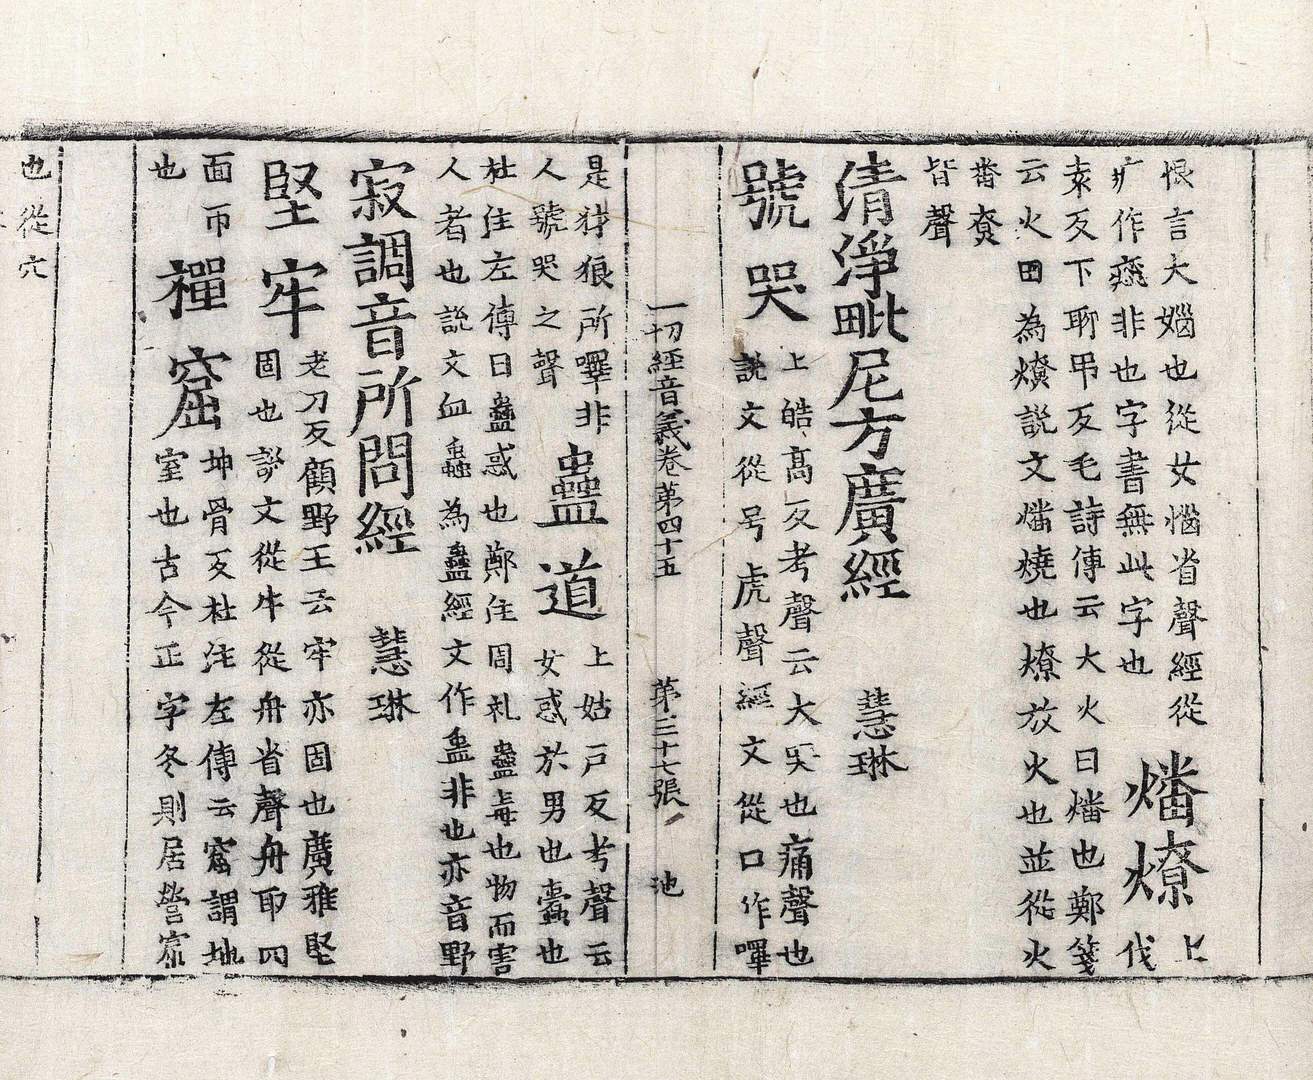 恨言大㛴也從女惱省聲經從
疒作𤺄非也字書無此字也
燔燎
上
伐
袁反下聊弔反毛詩傳云大火曰燔也鄭箋
云火田為燎説文燔燒也燎放火也並從火
番尞
皆聲
清淨毗尼方廣經 慧琳
號哭
上皓高反考聲云大哭也痛聲也
説文從号虎聲經文從口作嘷
一切經音義卷第四十五 第三十七張 池
是犲狼所嘷非
人號哭之聲
蠱道
上姑戸反考聲云
女惑於男也蠹也
杜注左傳曰蠱惑也鄭注周礼蠱毒也物而害
人者也説文血蟲為蠱經文作蛊非也亦音野
寂調音所問經 慧琳
堅牢
老刀反顧野王云牢亦固也廣雅堅
固也説文從牛從舟省聲舟取四
面帀
也
禪窟
坤骨反杜注左傳云窟謂地
室也古今正字冬則居營窟
也從穴